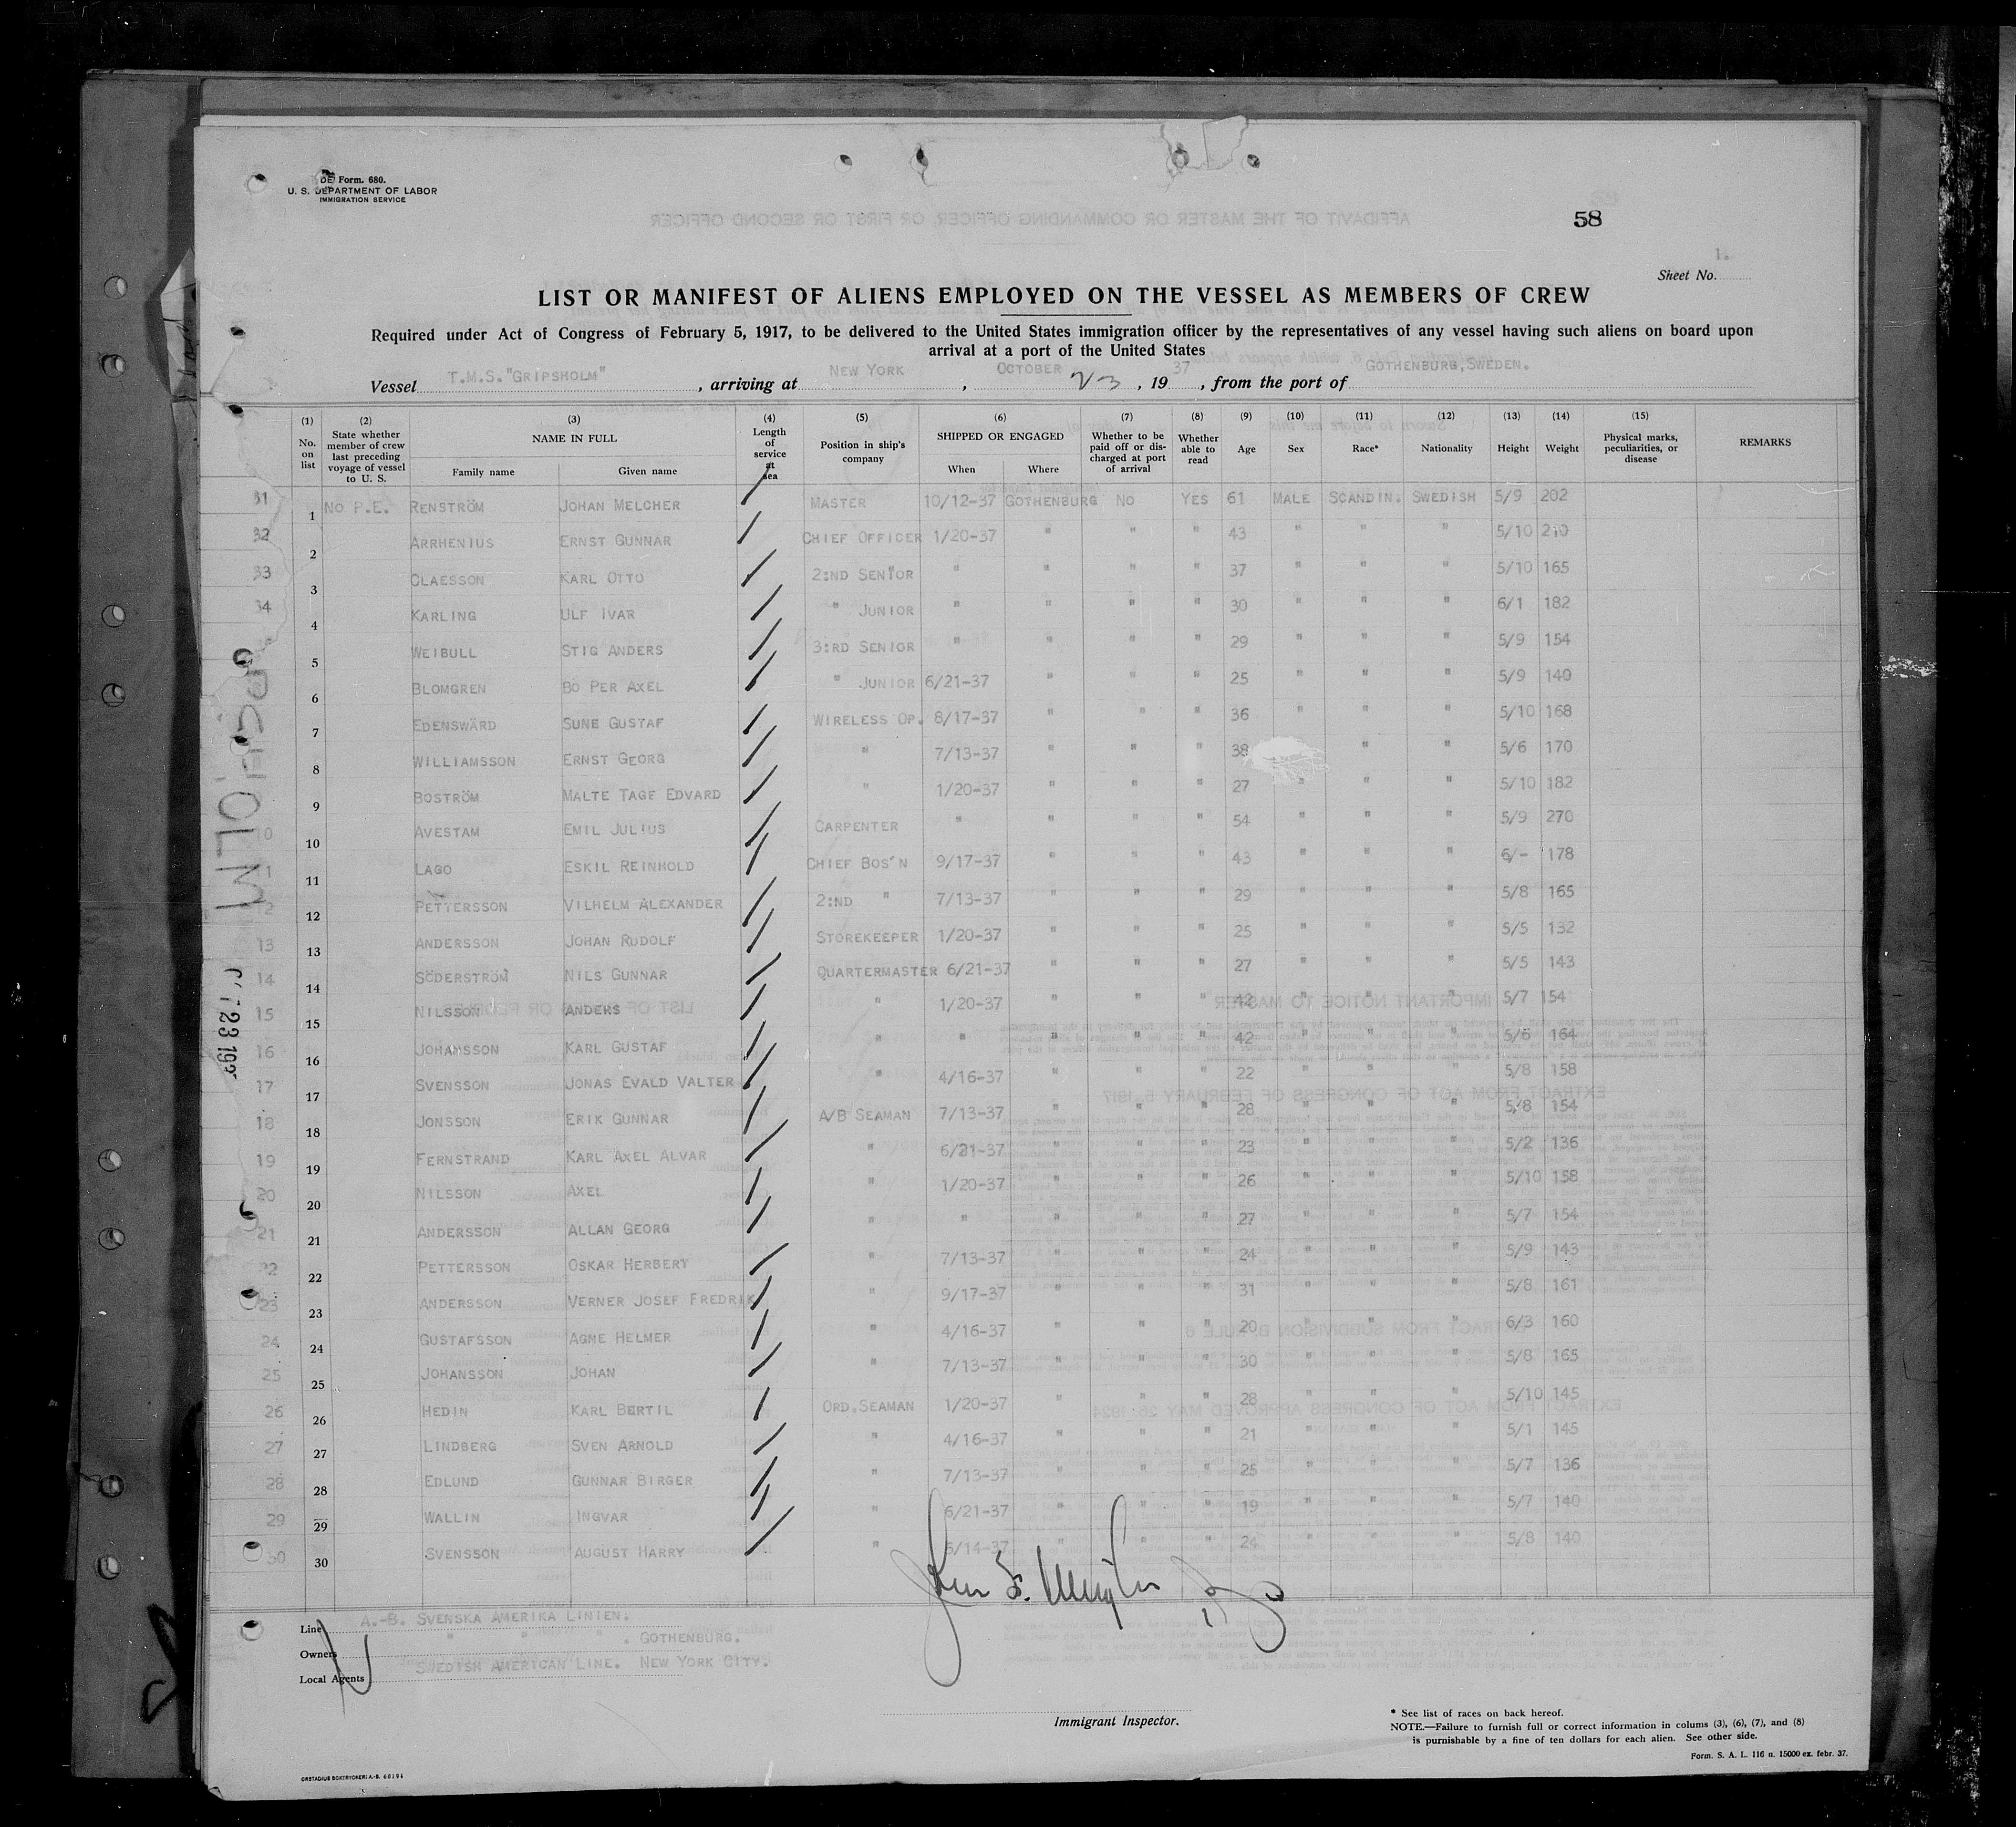 DE Form. 680.
U. S. DEPARTMENT OF LABOR
IMMIGRATION SERVICE
58
Sheet No. 1.
LIST OR MANIFEST OF ALIENS EMPLOYED ON THE VESSEL AS MEMBERS OF CREW
Required under Act of Congress of February 5, 1917, to be delivered to the United States immigration officer by the representatives of any vessel having such aliens on board upon
arrival at a port of the United States
Vessel T.M.S. "GRIPSHOLM" , arriving at NEW YORK , OCTOBER 23 , 19 37 , from the port of GOTHENBURG, SWEDEN.
(1) No. on list (2) State whether member of crew last preceding voyage of vessel to U. S. (3) NAME IN FULL Family name Given name (4) Length of service at sea (5) Position in ship's company (6) SHIPPED OR ENGAGED When Where (7) Whether to be paid off or discharged at port of arrival (8) Whether able to read (9) Age (10) Sex (11) Race* (12) Nationality (13) Height (14) Weight (15) Physical marks, peculiarities, or disease REMARKS
1 NO P.E. RENSTRÖM JOHAN MELCHER MASTER 10/12-37 GOTHENBURG NO YES 61 MALE SCANDIN. SWEDISH 5/9 202
2 ARRHENIUS ERNST GUNNAR CHIEF OFFICER 1/20-37 " " " 43 " " " 5/10 210
3 CLAESSON KARL OTTO 2:ND SENIOR " " " " 37 " " " 5/10 165
4 KARLING ULF IVAR " JUNIOR " " " " 30 " " " 6/1 182
5 WEIBULL STIG ANDERS 3:RD SENIOR " " " " 29 " " " 5/9 154
6 BLOMGREN BO PER AXEL " JUNIOR 6/21-37 " " " 25 " " " 5/9 140
7 EDENSWÄRD SUNE GUSTAF WIRELESS OP. 8/17-37 " " " 36 " " " 5/10 168
8 WILLIAMSSON ERNST GEORG " 7/13-37 " " " 38 " " 5/6 170
9 BOSTRÖM MALTE TAGE EDVARD " 1/20-37 " " " 27 " " " 5/10 182
10 AVESTAM EMIL JULIUS CARPENTER " " " " 54 " " " 5/9 270
11 LAGO ESKIL REINHOLD CHIEF BOS'N 9/17-37 " " " 43 " " " 6/- 178
12 PETTERSSON VILHELM ALEXANDER 2:ND " 7/13-37 " " " 29 " " " 5/8 165
13 ANDERSSON JOHAN RUDOLF STOREKEEPER 1/20-37 " " " 25 " " " 5/5 132
14 SÖDERSTRÖM NILS GUNNAR QUARTERMASTER 6/21-37 " " " 27 " " " 5/5 143
15 NILSSON ANDERS " 1/20-37 " " " 42 " " " 5/7 154
16 JOHANSSON KARL GUSTAF " " " " " 42 " " " 5/6 164
17 SVENSSON JONAS EVALD VALTER " 4/16-37 " " " 22 " " " 5/8 158
18 JONSSON ERIK GUNNAR A/B SEAMAN 7/13-37 " " " 28 " " " 5/8 154
19 FERNSTRAND KARL AXEL ALVAR " 6/21-37 " " " 23 " " " 5/2 136
20 NILSSON AXEL " 1/20-37 " " " 26 " " " 5/10 158
21 ANDERSSON ALLAN GEORG " " " " " 27 " " " 5/7 154
22 PETTERSSON OSKAR HERBERT " 7/13-37 " " " 24 " " " 5/9 143
23 ANDERSSON VERNER JOSEF FREDRIK " 9/17-37 " " " 31 " " " 5/8 161
24 GUSTAFSSON AGNE HELMER " 4/16-37 " " " 20 " " " 6/3 160
25 JOHANSSON JOHAN " 7/13-37 " " " 30 " " " 5/8 165
26 HEDIN KARL BERTIL ORD. SEAMAN 1/20-37 " " " 28 " " " 5/10 145
27 LINDBERG SVEN ARNOLD " 4/16-37 " " " 21 " " " 5/1 145
28 EDLUND GUNNAR BIRGER " 7/13-37 " " " 25 " " " 5/7 136
29 WALLIN INGVAR " 6/21-37 " " " 19 " " " 5/7 140
30 SVENSSON AUGUST HARRY " 5/14-37 " " " 24 " " " 5/8 140
Line A.-B. SVENSKA AMERIKA LINIEN.
Owners " " " . GOTHENBURG.
Local Agents SWEDISH AMERICAN LINE. NEW YORK CITY.
Immigrant Inspector.
* See list of races on back hereof.
NOTE.—Failure to furnish full or correct information in colums (3), (6), (7), and (8)
is purnishable by a fine of ten dollars for each alien. See other side.
Form. S. A. L. 116 n. 15000 ex. febr. 37.